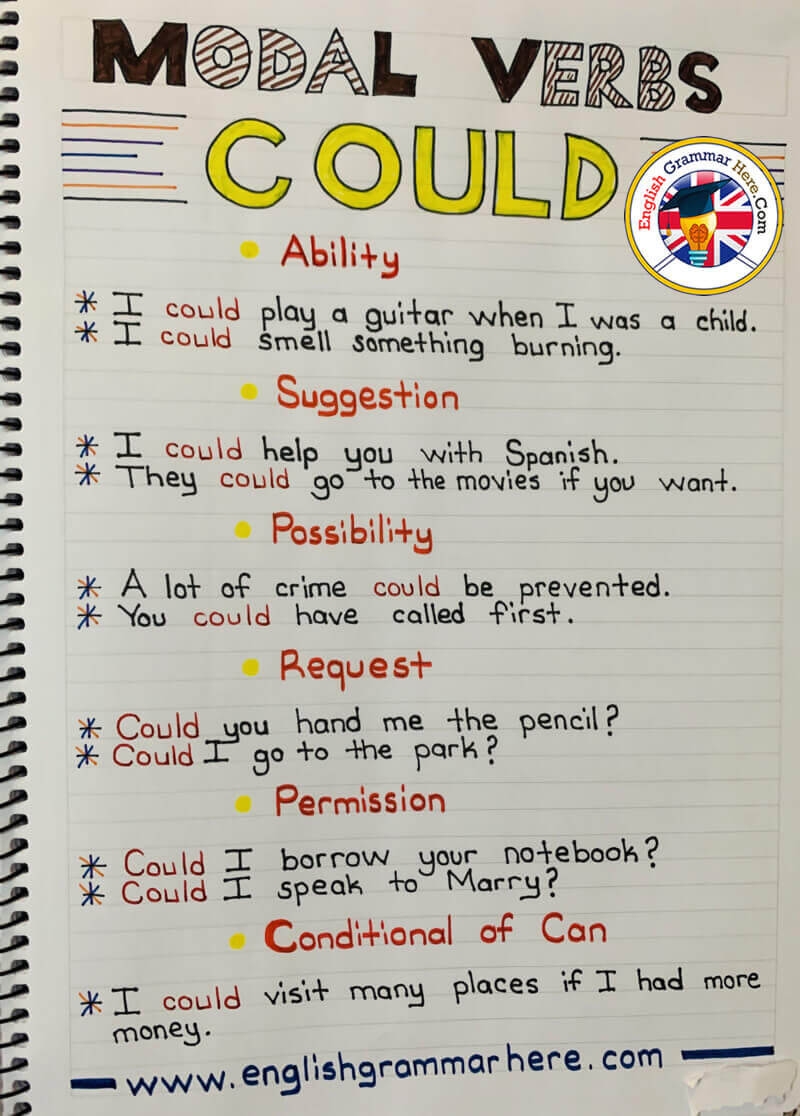 MODAL VERBS
COULD
English Grammar Here.Com
Ability
I could play a guitar when I was a child.
I could smell something burning.
Suggestion
I could help you with Spanish.
They could go to the movies if you want.
Possibility
A lot of crime could be prevented.
You could have called first.
Request
Could you hand me the pencil?
Could I go to the park?
Permission
Could I borrow your notebook?
Could I speak to Marry?
Conditional of Can
I could visit many places if I had more
money.
www.englishgrammarhere.com